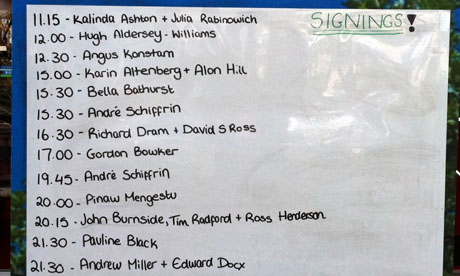 SIGNINGS!
11.15 - Kalinda Ashton + Julia Rabinowich
12.00 - Hugh Aldersey-Williams
12.30 - Angus Konstam
15.00 - Karin Altenberg + Alon Hill
15.30 - Bella Bathurst
15.30 - André Schiffrin
16.30 - Richard Dram + David S Ross
17.00 - Gordon Bowker
19.45 - André Schiffrin
20.00 - Pinaw Mengestu
20.15 - John Burnside, Tim Radford + Ross Henderson
21.30 - Pauline Black
21.30 - Andrew Miller + Edward Docx